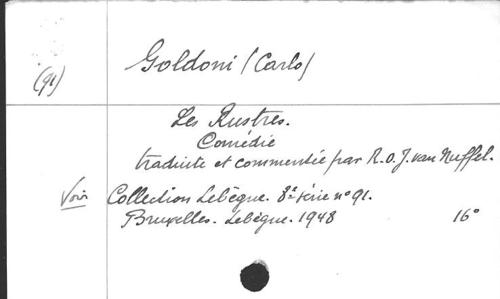 Goldoni (Carlo)
(91)
Les Rustres.
Comédie
traduite et commentée par R.O.J. van Nuffel.
Voir Collection Lebègue. 8e série n° 91.
Bruxelles. Lebègue. 1948 16°